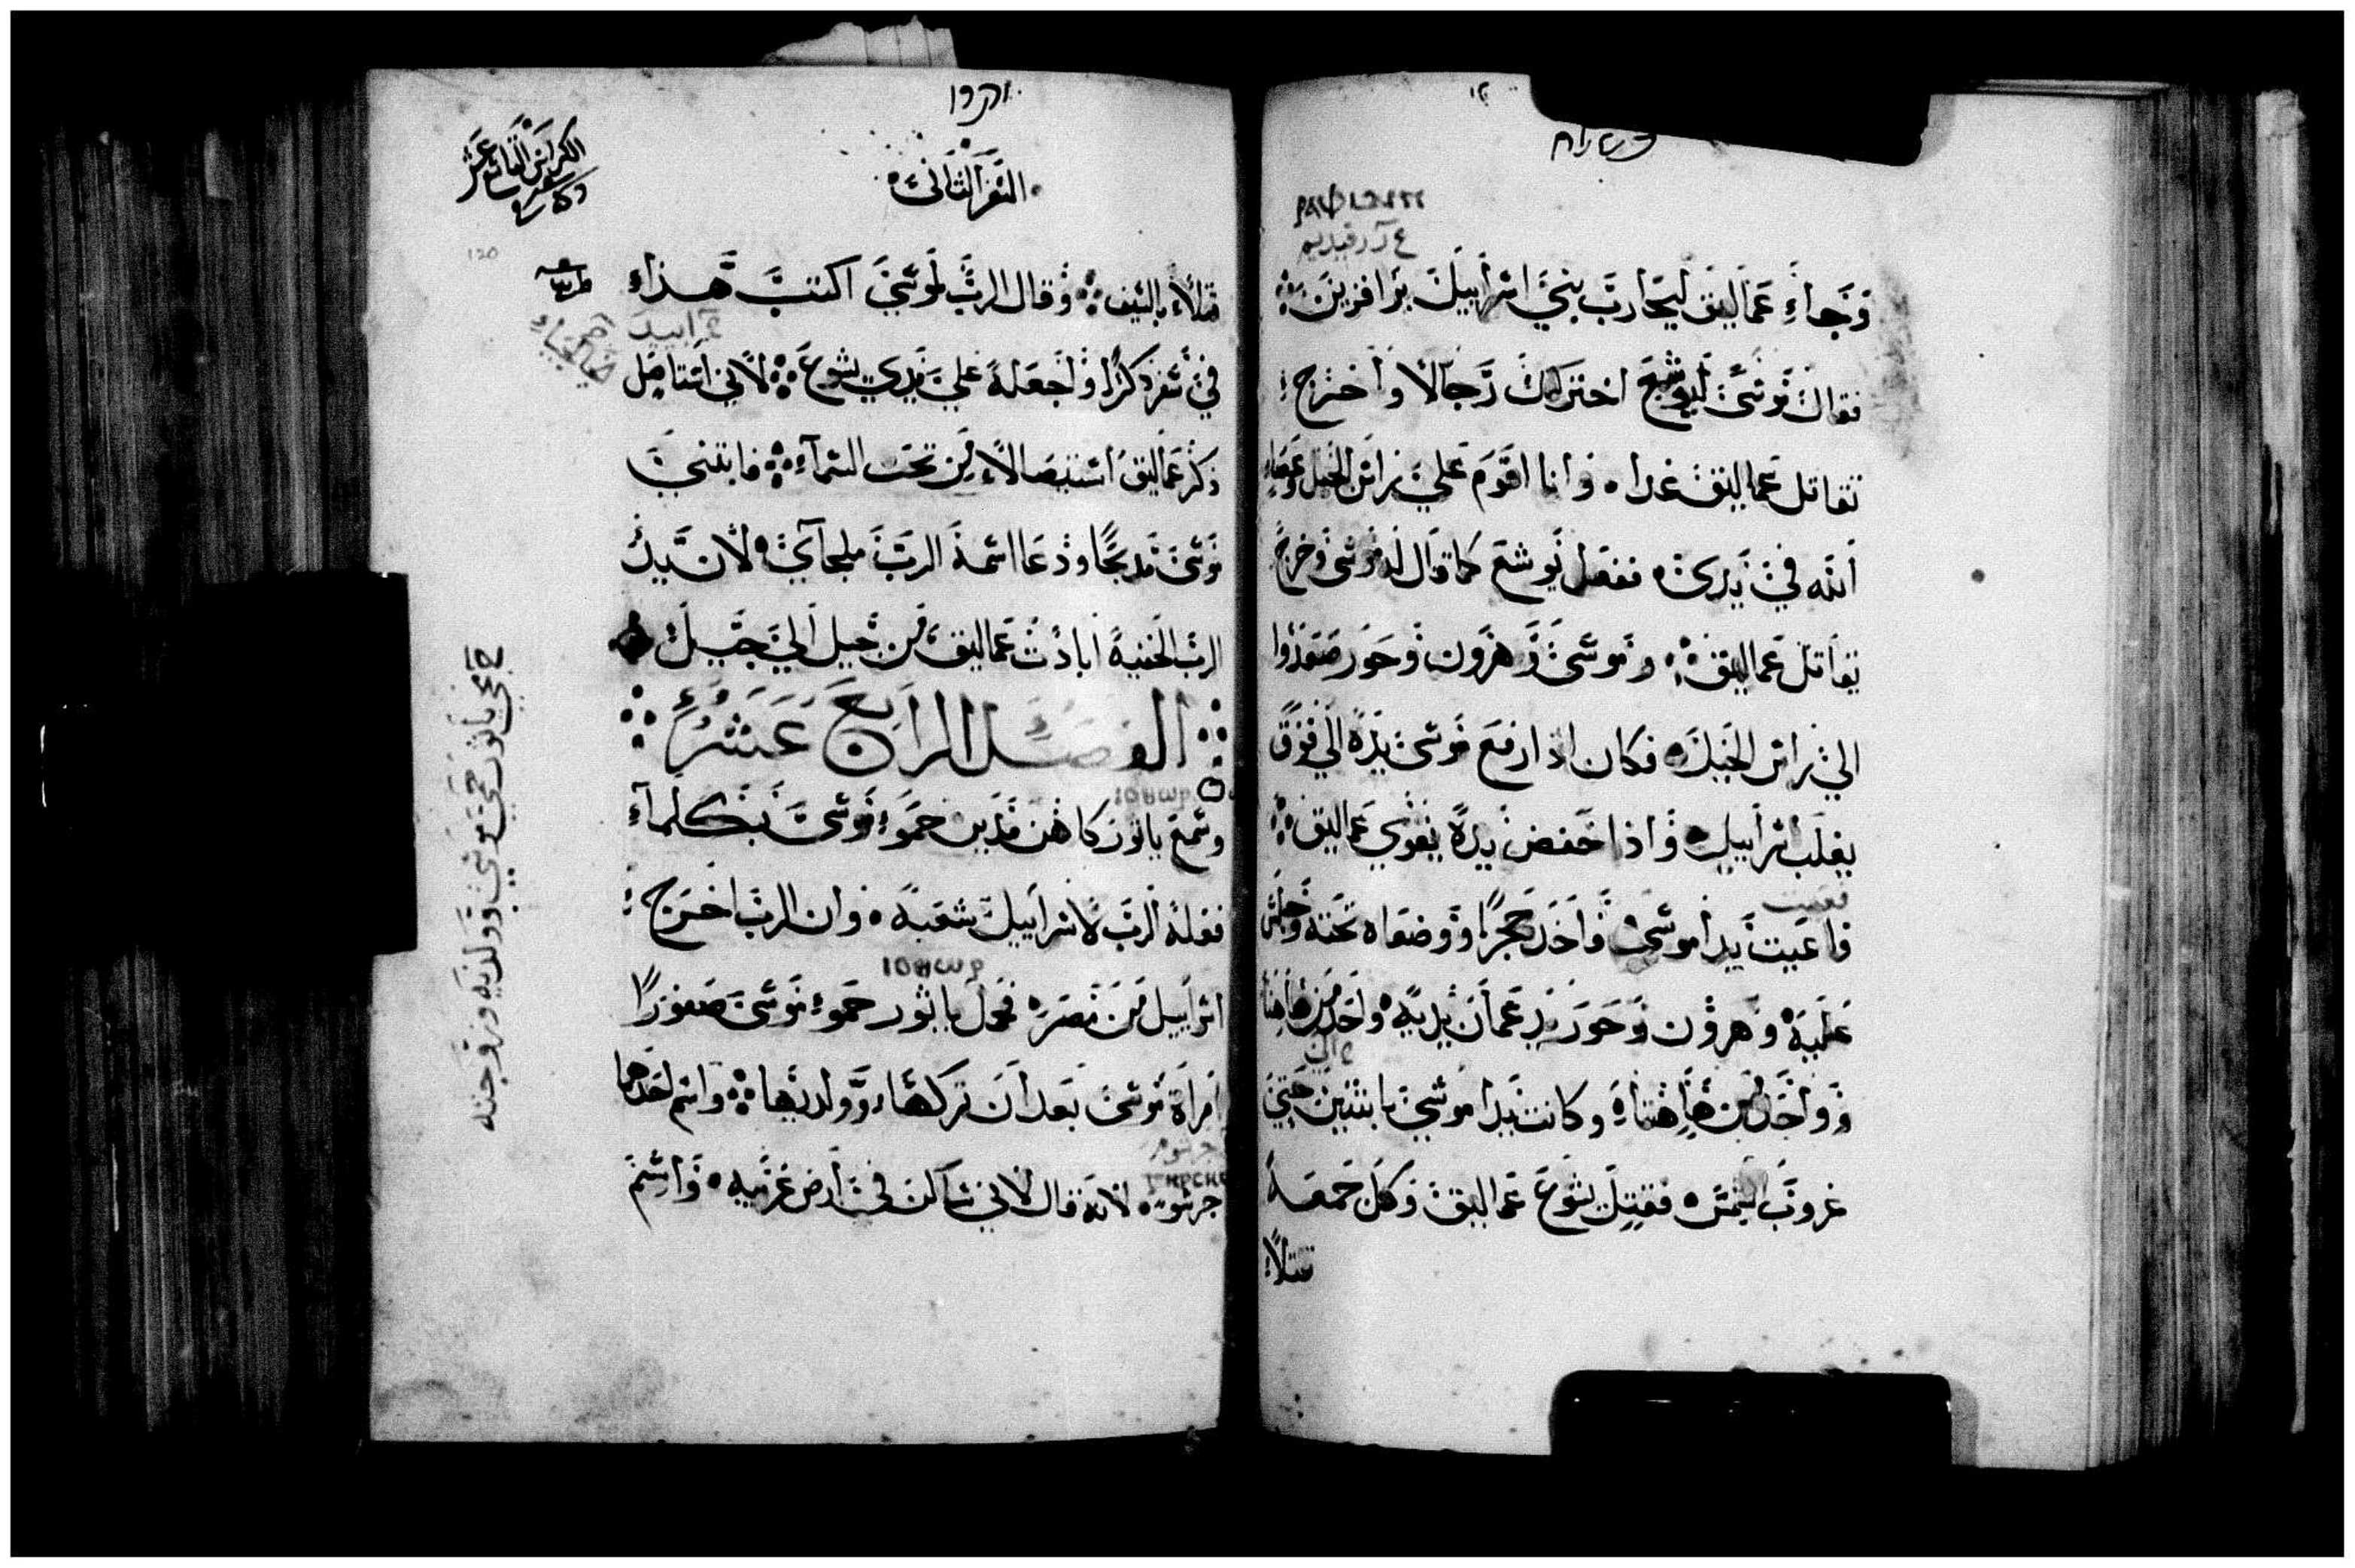 وجاء عماليق ليحارب بني اسراييل برافزين
فقال موسى ليوشع اختر لك رجالا واخرج
تقاتل عماليق غدا وانا اقوم على راس الجبل وعصاء
الله في يدى ففعل يوشع كما قال له موسى وخرج
يقاتل عماليق وموسى وهرون وحور صعدوا
الي راس الجبل فكان اذا رفع موسى يده الي فوق
يغلب اسراييل واذا خفض يده يقوي عماليق
فاعيت يدا موسى فاخد حجرا ووضعاه تحته وجلس
عليه وهرون وحور يدعمان يديه واحد من هاهنا
وواحد من هاهناه وكانت يدا موسي ثابتتين حتي
غروب الشمس فقتل يشوع عماليق وكل جمعه
قتلا
السفر الثاني
قتلا بالسيف وقال الرب لموسى اكتب هذا
في سفر ذكرا واجعله علي يدي يشوع لاني استاصل
ذكر عماليق استيصالا من تحت السماء فابتني
موسى مدبحا ودعا اسمه الرب ملجاي لان بيد
الرب الخفية اباد عماليق من جيل الي جيل
الفصل الرابع عشر
وسمع ياثور كاهن مدين حمو موسى بكلما
فعله الرب لاسراييل شعبه وان الرب اخرج
اسراييل من مصر فحمل ياثور حمو موسى صفورا
امراة موسى بعد ان تركها وولديها واسم احدهما
جرشوم لانه قال لاني ساكن في ارض غريبه واسم
مجي ياثور حمي موسي وولديه وزوجته